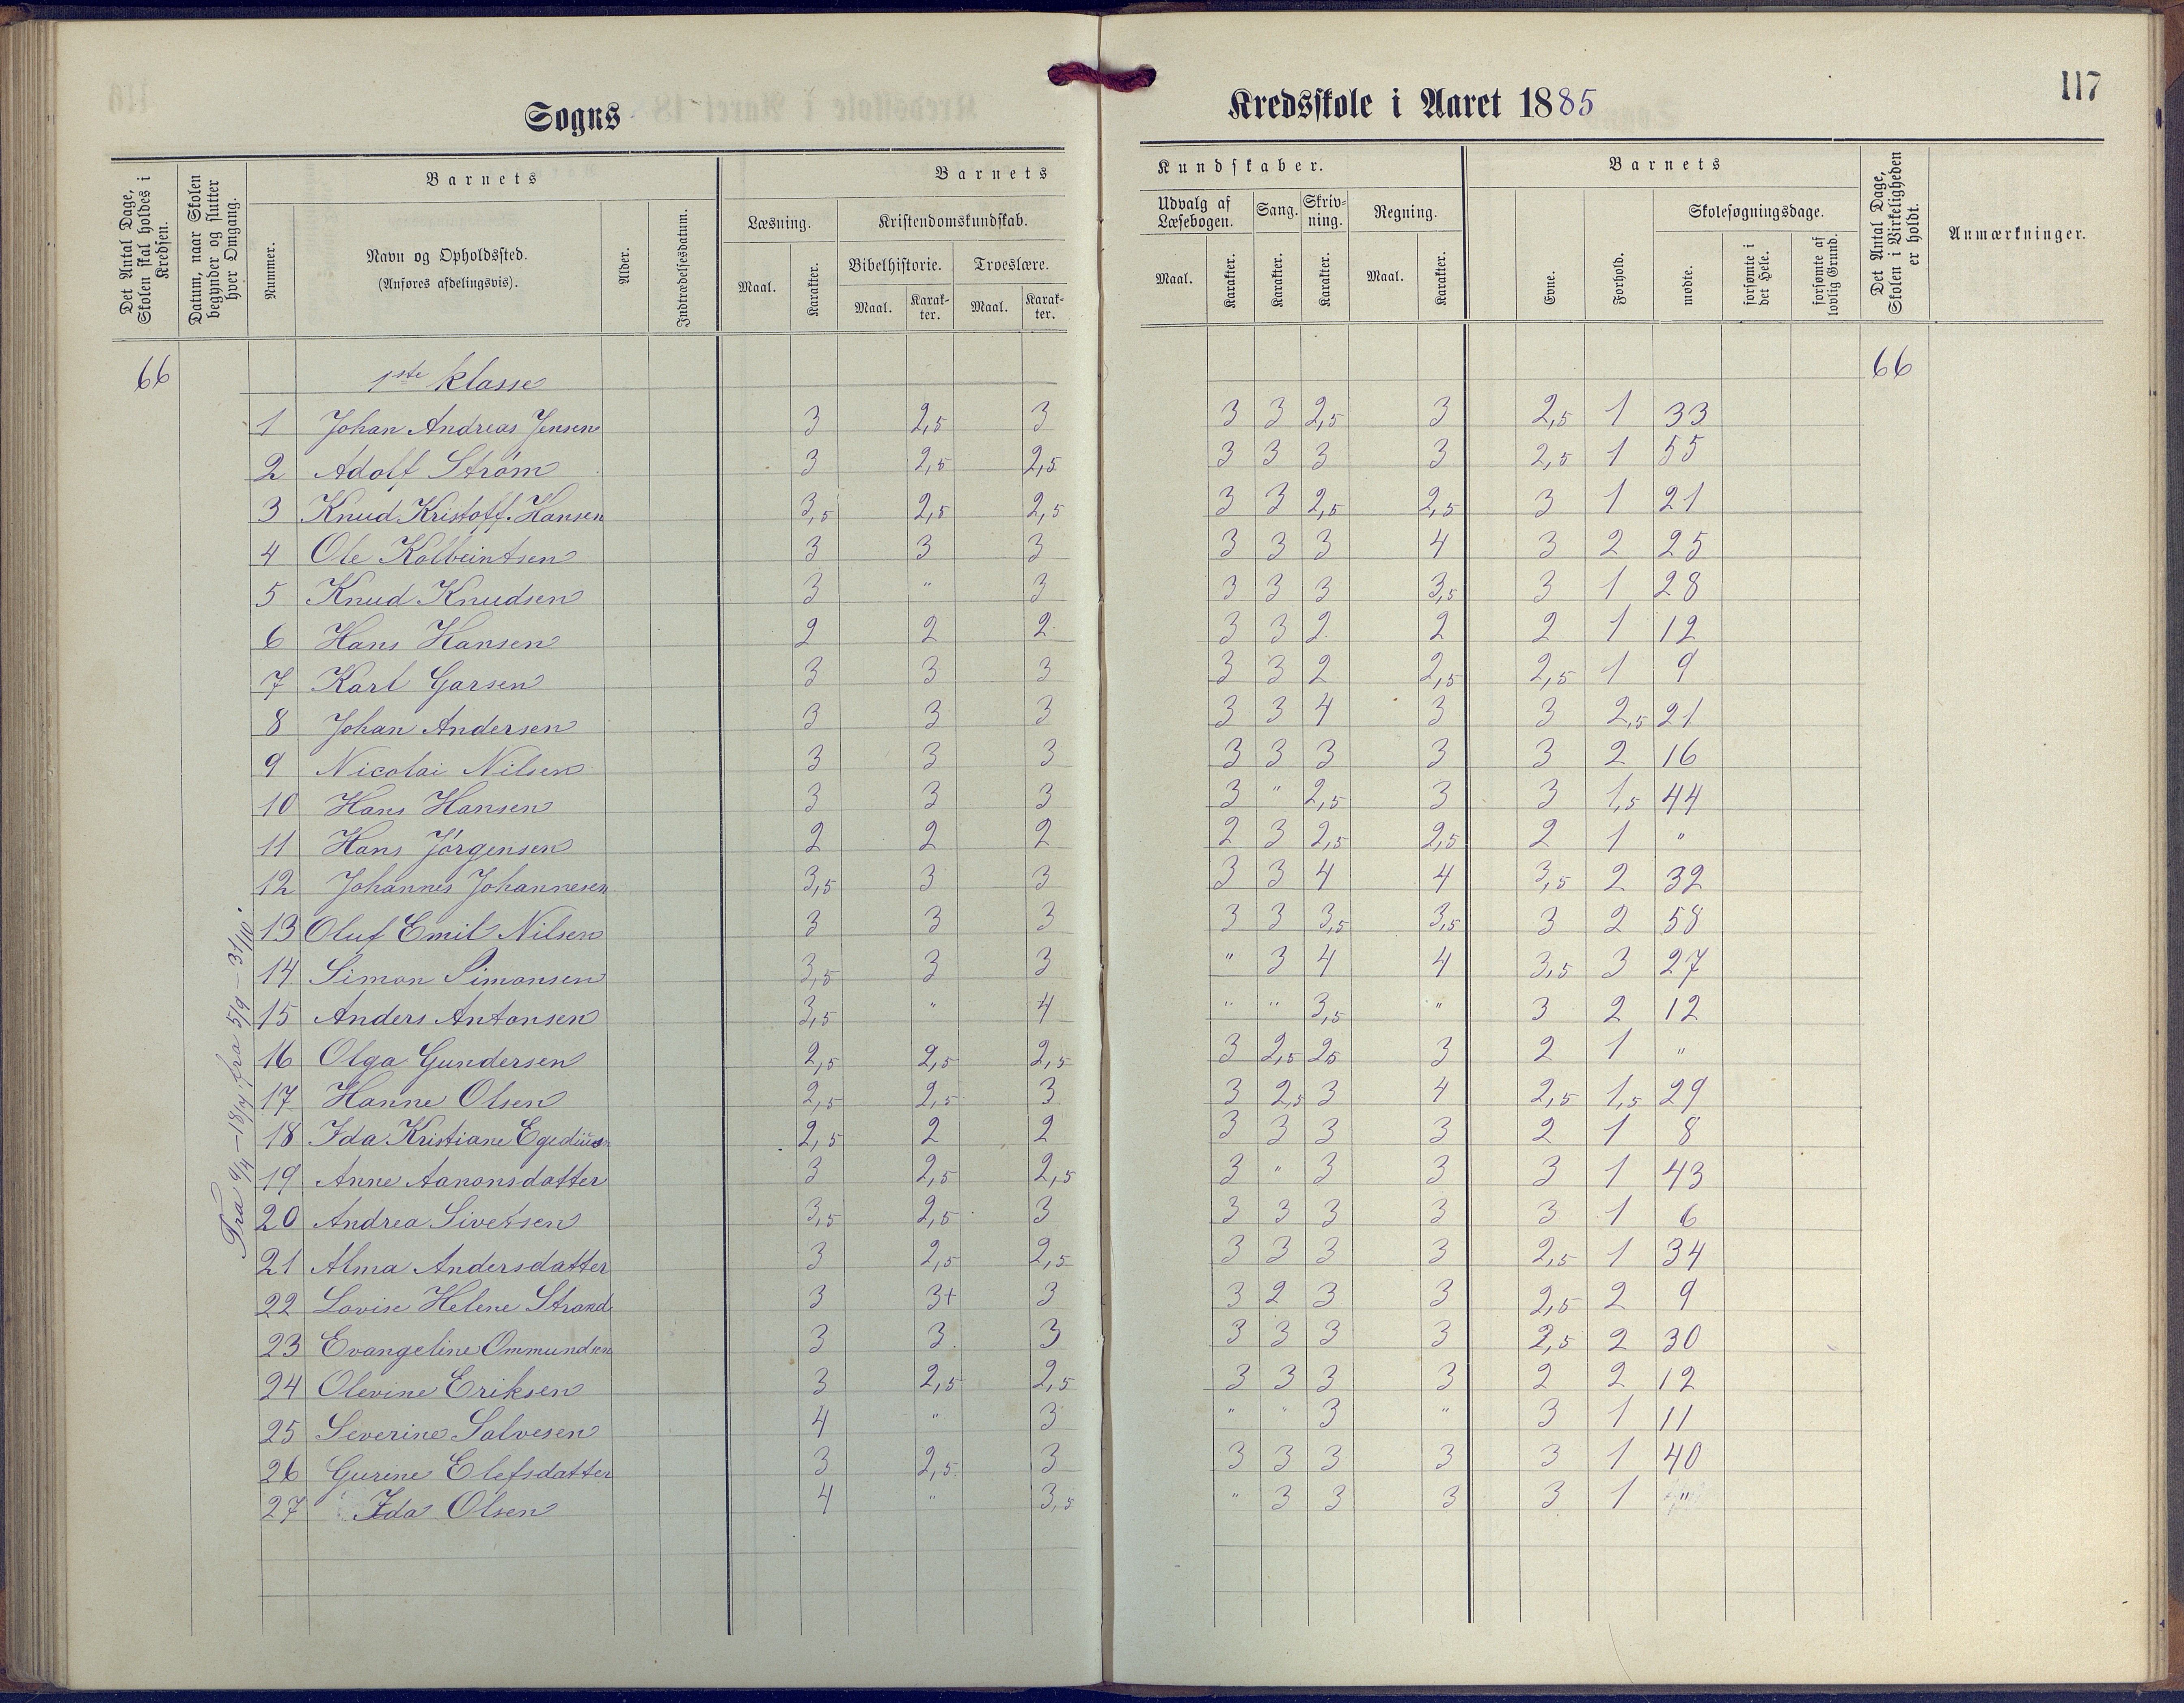 117
Sogns Kredsskole i Aaret 1885
Det Antal Dage, Skolen skal holdes i Kredsen.
Datum, naar Skolen begynder og slutter hver Omgang.
Barnets
Nummer.
Navn og Opholdssted. (Anføres afdelingsvis).
Alder.
Indtrædelsesdatum.
Barnets Kundskaber.
Læsning. Maal. Karakter.
Kristendomskundskab.
Bibelhistorie. Maal. Karakter.
Troeslære. Maal. Karakter.
Udvalg af Læsebogen. Maal. Karakter.
Sang. Karakter.
Skrivning. Karakter.
Regning. Maal. Karakter.
Barnets
Evne.
Forhold.
Skolesøgningsdage.
mødte.
forsømte i det Hele.
forsømte af lovlig Grund.
Det Antal Dage, Skolen i Virkeligheden er holdt.
Anmærkninger.
66 1ste klasse 66
1 Johan Andreas Jensen 3 2,5 3 3 3 2,5 3 2,5 1 33
2 Adolf Strøm 3 2,5 2,5 3 3 3 3 2,5 1 55
3 Knud Kristoff. Hansen 3,5 2,5 2,5 3 3 2,5 2,5 3 1 21
4 Ole Kolbeintsen 3 3 3 3 3 3 4 3 2 25
5 Knud Knudsen 3 " 3 3 3 3 3,5 3 1 28
6 Hans Hansen 2 2 2 3 3 2 2 2 1 12
7 Karl Garsen 3 3 3 3 3 2 2,5 2,5 1 9
8 Johan Andersen 3 3 3 3 3 4 3 3 2,5 21
9 Nicolai Nilsen 3 3 3 3 3 3 3 3 2 16
10 Hans Hansen 3 3 3 3 " 2,5 3 3 1,5 44
11 Hans Jörgensen 2 2 2 2 3 2,5 2,5 2 1 "
12 Johannes Johannesen 3,5 3 3 3 3 4 4 3,5 2 32
13 Oluf Emil Nilsen 3 3 3 3 3 3,5 3,5 3 2 58
14 Simon Simonsen 3,5 3 3 " 3 4 4 3,5 3 27
15 Anders Antonsen 3,5 " 4 " " 3,5 " 3 2 12
16 Olga Gundersen 2,5 2,5 2,5 3 2,5 25 3 2 1 "
17 Hanne Olsen 2,5 2,5 3 3 2,5 3 4 2,5 1,5 29
18 Ida Kristiane Egedius 2,5 2 2 3 3 3 3 2 1 8
19 Anne Aanonsdatter 3 2,5 2,5 3 " 3 3 3 1 43
20 Andrea Sivetsen 3,5 2,5 3 3 3 3 3 3 1 6
21 Alma Andersdatter 3 2,5 2,5 3 3 3 3 2,5 1 34
22 Lovise Helene Strand 3 3+ 3 3 2 3 3 2,5 2 9
23 Evangeline Ommundsen 3 3 3 3 3 3 3 2,5 2 30
24 Olevine Eriksen 3 2,5 2,5 3 3 3 3 2 2 12
25 Severine Salvesen 4 " 3 " " 3 " 3 1 11
26 Gurine Elefsdatter 3 2,5 3 3 3 3 3 3 1 40
27 Ida Olsen 4 " 3,5 " 3 3 3 3 1 "
Fra 9/4 – 18/7, fra 5/9 – 31/10